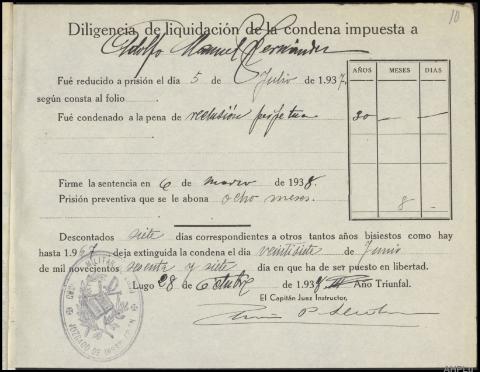 10
Diligencia de liquidación de la condena impuesta a
Adolfo Manuel Fernández
Fué reducido a prisión el día 5 de Julio de 1937.
según consta al folio
AÑOS MESES DIAS
Fué condenado a la pena de reclusión perpetua
30 — —
Firme la sentencia en 6 de marzo de 1938.
Prisión preventiva que se le abona ocho meses.
8 -
Descontados siete días correspondientes a otros tantos años bisiestos como hay
hasta 1.967 deja extinguida la condena el día veintisiete de Junio
de mil novecientos sesenta y siete día en que ha de ser puesto en libertad.
Lugo 28 de Octubre de 193 Año Triunfal.
El Capitán Juez Instructor,
MILITAR
JUZGADO DE